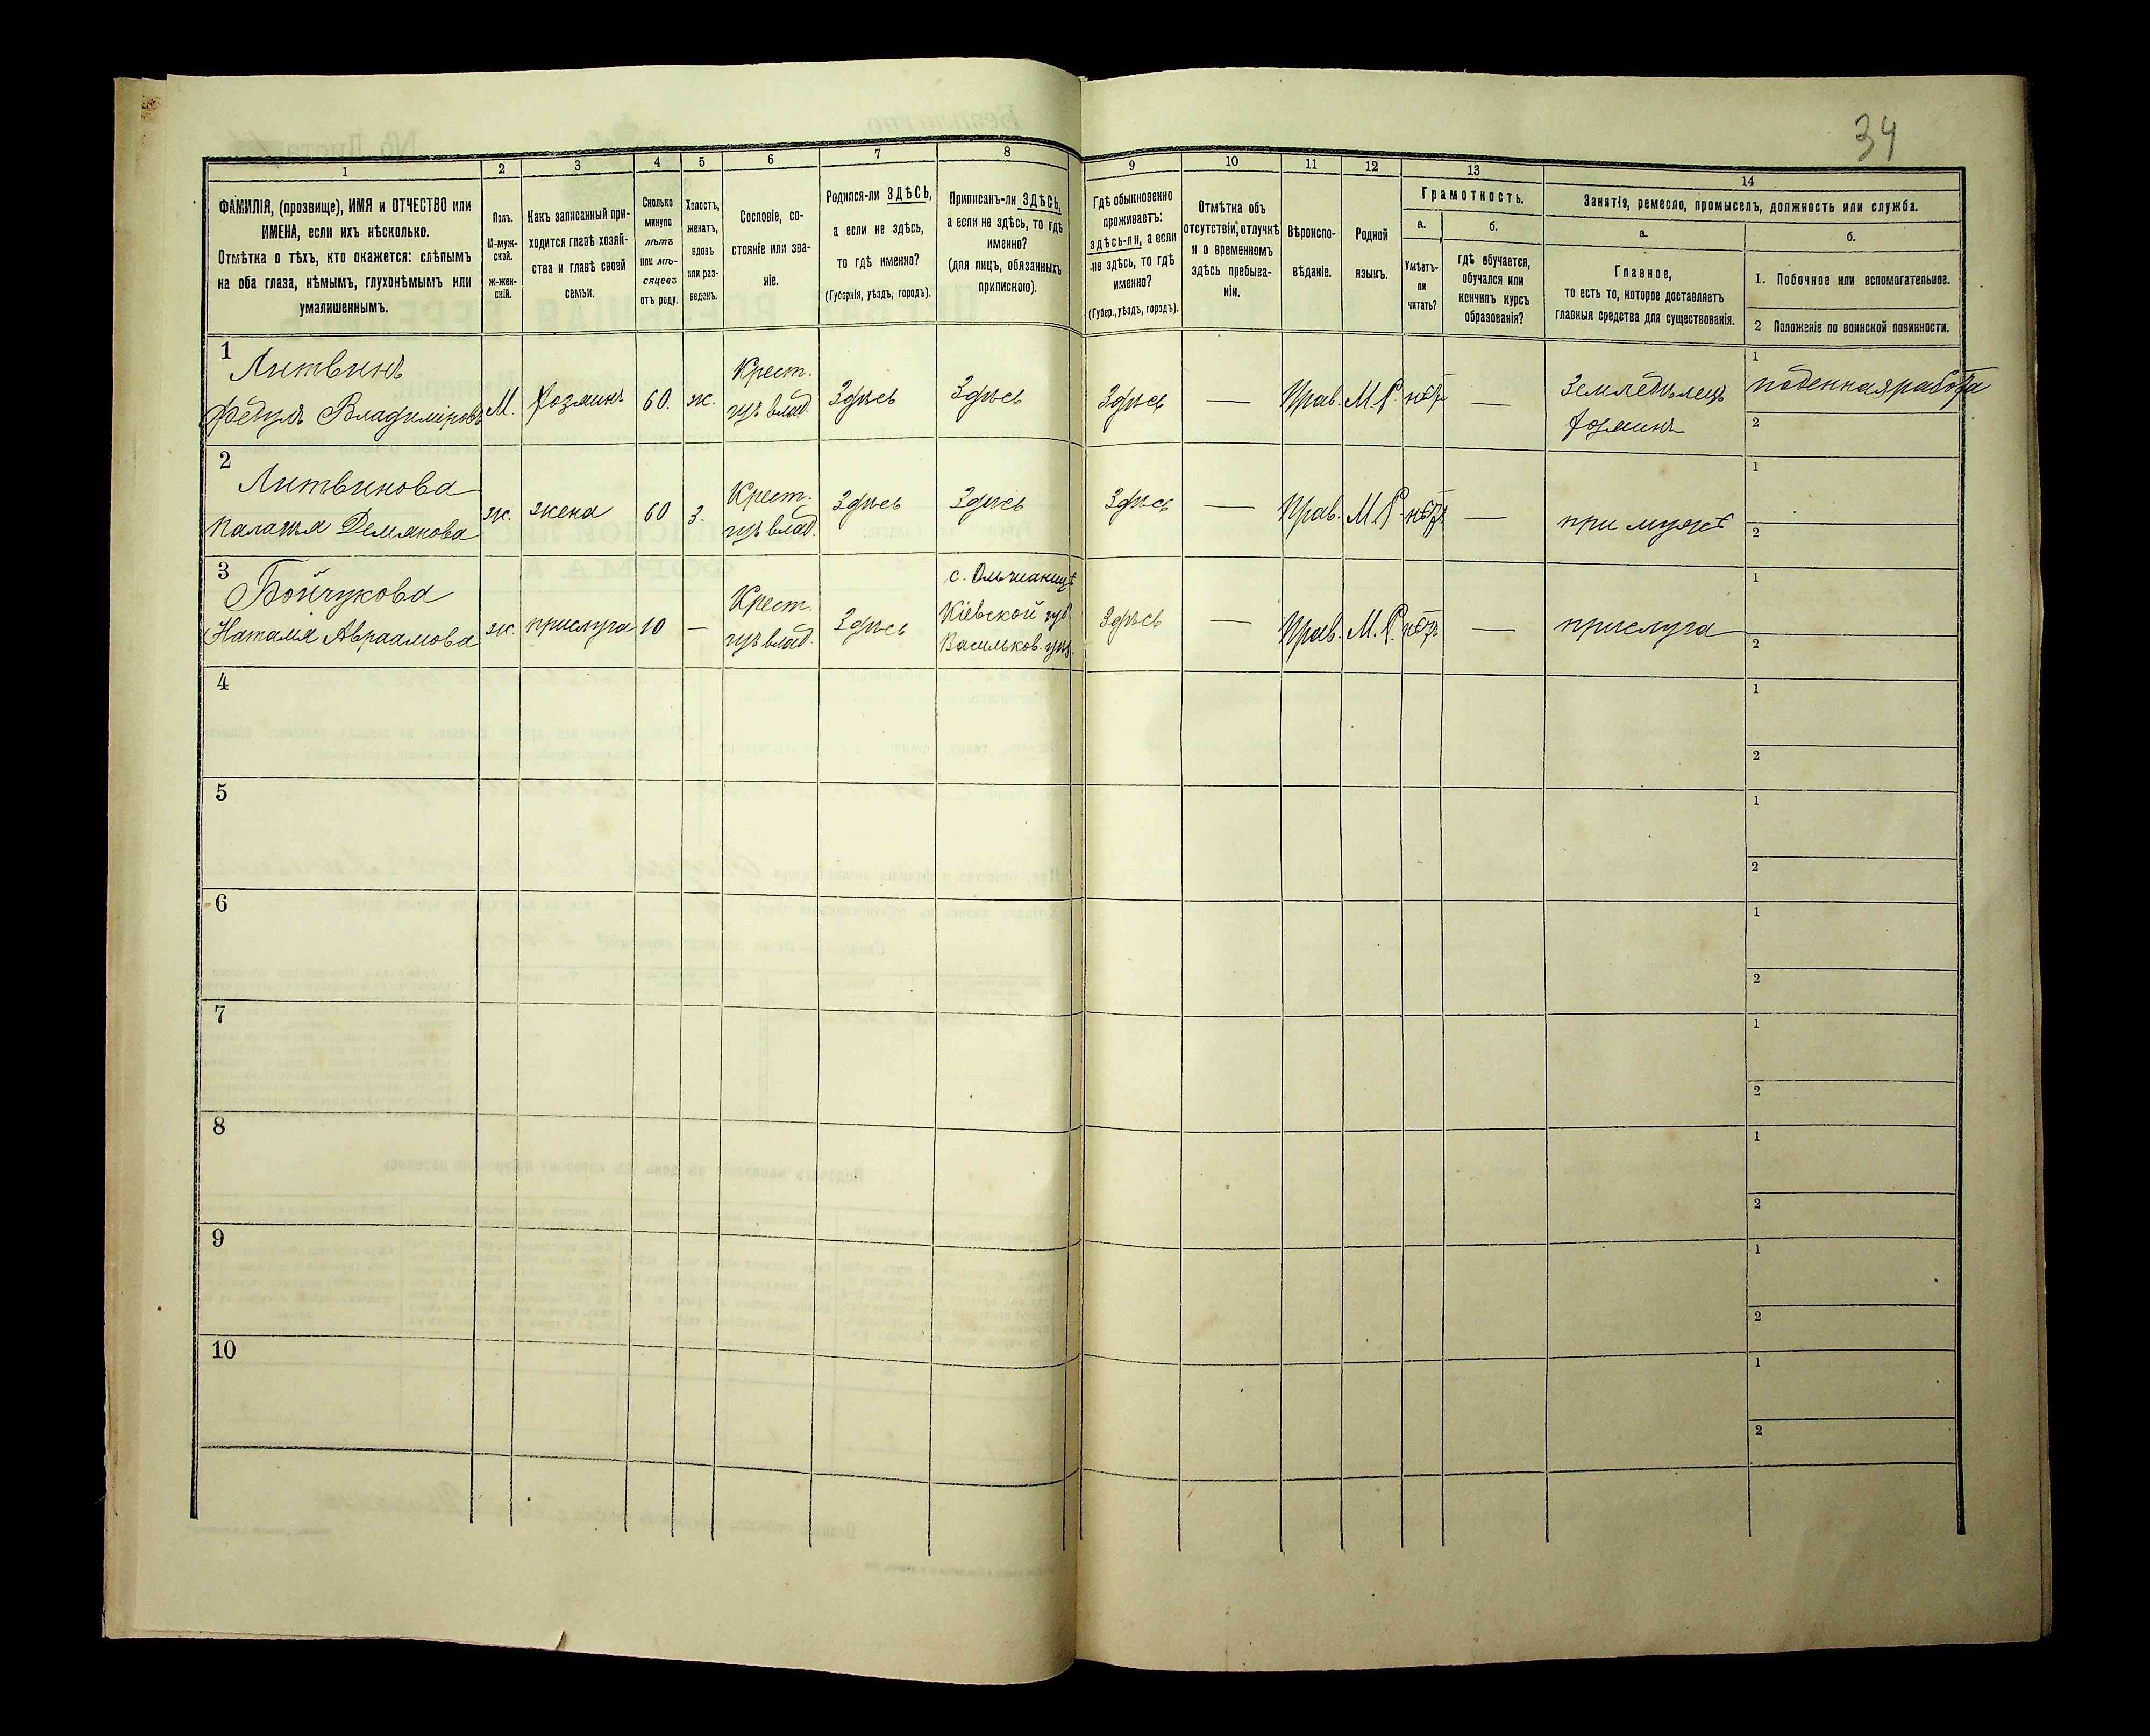 34
1
2
3
4
5
6
7
8
9
10
11
12
13
14
ФАМИЛІЯ, (прозвище), ИМЯ и ОТЧЕСТВО или
ИМЕНА, если ихъ нѣсколько.
Отмѣтка о тѣхъ, кто окажется: слѣпымъ
на оба глаза, нѣмымъ, глухонѣмымъ или
умалишеннымъ.
Полъ.
М-муж-
ской.
ж-жен-
скій.
Какъ записанный при-
ходится главѣ хозяй-
ства и главѣ своей
семьи.
Сколько
минуло
лѣтъ
или мѣ-
сяцевъ
отъ роду.
Холостъ,
женатъ,
вдовъ
или раз-
веденъ.
Сословіе, со-
стояніе или зва-
ніе.
Родился-ли ЗДѢСЬ,
а если не здѣсь,
то гдѣ именно?
(Губернія, уѣздъ, городъ).
Приписанъ-ли ЗДѢСЬ,
а если не здѣсь, то гдѣ
именно?
(для лицъ, обязанныхъ
припискою).
Гдѣ обыкновенно
проживаетъ:
здѣсь-ли, а если
не здѣсь, то гдѣ
именно?
(Губер., уѣздъ, городъ).
Отмѣтка объ
отсутствіи, отлучкѣ
и о временномъ
здѣсь пребыва-
ніи.
Вѣроиспо-
вѣданіе.
Родной
языкъ.
Грамотность.
а.
Умѣетъ-
ли
читать?
б.
гдѣ обучается,
обучался или
кончилъ курсъ
образованія?
Занятія, ремесло, промыселъ, должность или служба.
а.
Главное,
то есть то, которое доставляетъ
главныя средства для существованія.
б.
1. Побочное или вспомогательное.
2 Положеніе по воинской повинности.
1
Литвинъ
Федулъ Владиміровъ
М.
хозяинъ
60.
ж.
Крест.
изъ влад.
Здѣсь
Здѣсь
Здѣсь
—
Прав.
М.Р.
нѣтъ
—
Земледѣлецъ
хозяинъ
1
поденная работа
2
2
Литвинова
Палагія Демянова
ж.
жена
60
з.
Крест.
изъ влад.
Здѣсь
Здѣсь
Здѣсь
—
Прав.
М.Р.
нѣтъ
—
при мужѣ
1
2
3
Бойчукова
Наталія Авраамова
ж.
прислуга
10
—
Крест.
изъ влад.
Здѣсь
с. Ольшаницѣ
Кіевской губ.
Васильков. уѣз.
Здѣсь
—
Прав.
М.Р.
нѣтъ
—
прислуга
1
2
4
1
2
5
1
2
6
1
2
7
1
2
8
1
2
9
1
2
10
1
2